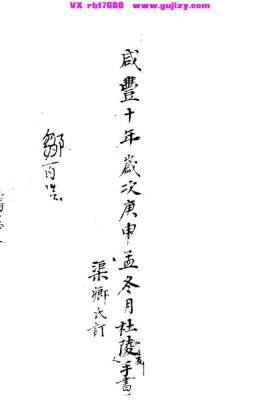 VX rbt7688 www.gujizy.com
咸豐十年歲次庚申孟冬月杜陵手書
渠鄉氏訂
鄒百浩